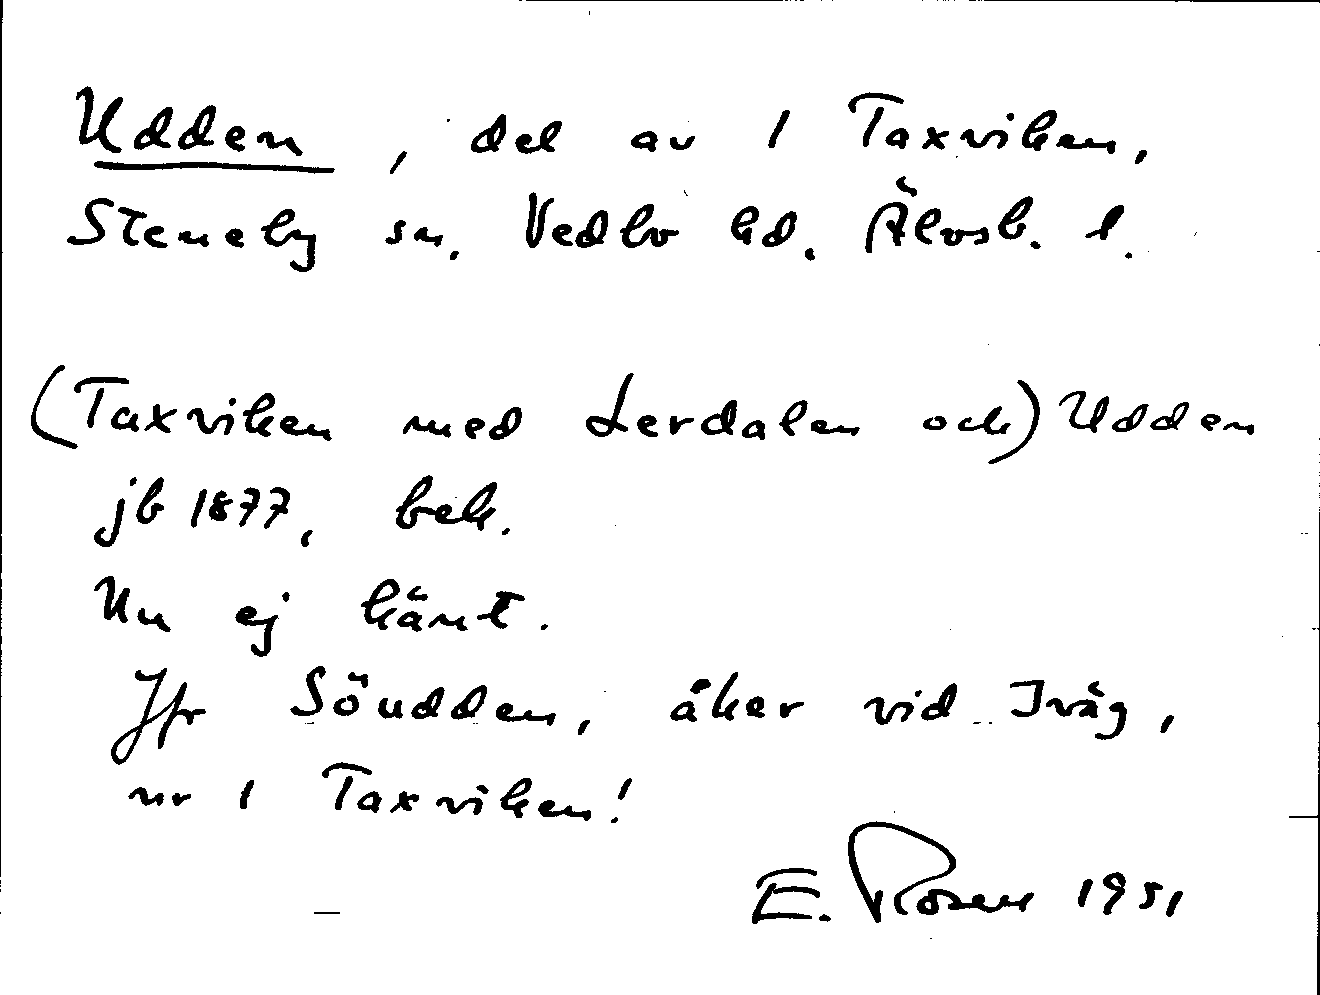 Udden, del av 1 Taxviken,
Steneby sn. Vedbo hd. Älvsb. l.
(Taxviken med Lerdalen och) Udden
jb 1877, bek.
Nu ej känt.
Jfr Söudden, åker vid Iväg,
nr 1 Taxviken!
E. Rosen 1951